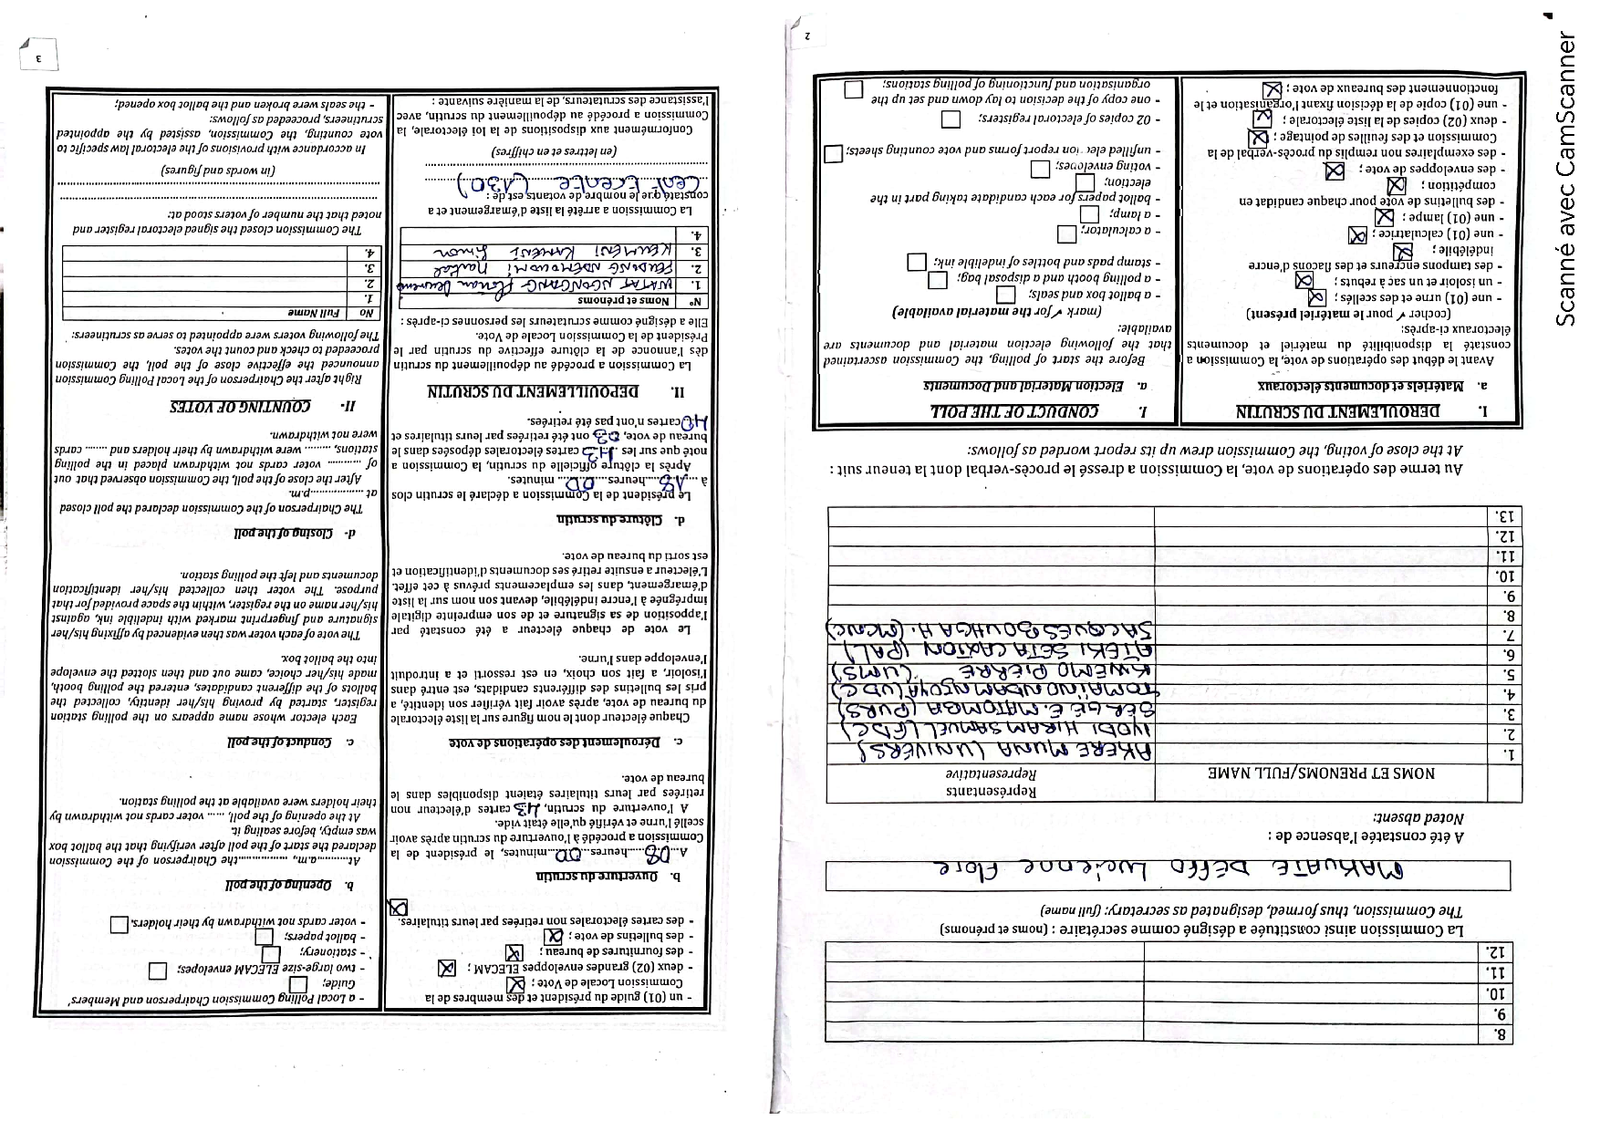 8.
9.
10.
11.
12.
La Commission ainsi constituée a désigné comme secrétaire : (noms et prénoms)
The Commission, thus formed, designated as secretary: (full name)
MAKUATE DEFFO Lucienne Flore
A été constatée l'absence de :
Noted absent:
NOMS ET PRENOMS/FULL NAME
Représentants
Representative
1. AKERE MUNA (UNIVERS)
2. IYODI HIRAM SAMUEL (FDC)
3. SERGE E. MATOMBA (PURS)
4. TOMAÏNO NDAM NJOYA (UDC)
5. KWEMO PIERRE (UMS)
6. ATEKI SETA CAXTON (PAL)
7. JACQUES BOUHGA H. (MCNC)
8.
9.
10.
11.
12.
13.
Au terme des opérations de vote, la Commission a dressé le procès-verbal dont la teneur suit :
At the close of voting, the Commission drew up its report worded as follows:
I. DEROULEMENT DU SCRUTIN
a. Matériels et documents électoraux
Avant le début des opérations de vote, la Commission a
constaté la disponibilité du matériel et documents
électoraux ci-après:
(cocher ✓ pour le matériel présent)
- une (01) urne et des scellés ;
- un isoloir et un sac à rebuts ;
- des tampons encreurs et des flacons d'encre
indélébile ;
- une (01) calculatrice ;
- une (01) lampe ;
- des bulletins de vote pour chaque candidat en
compétition ;
- des enveloppes de vote ;
- des exemplaires non remplis du procès-verbal de la
Commission et des feuilles de pointage ;
- deux (02) copies de la liste électorale ;
- une (01) copie de la décision fixant l'organisation et le
fonctionnement des bureaux de vote ;
I. CONDUCT OF THE POLL
a. Election Material and Documents
Before the start of polling, the Commission ascertained
that the following election material and documents are
available:
(mark ✓ for the material available)
- a ballot box and seals;
- a polling booth and a disposal bag;
- stamp pads and bottles of indelible ink;
- a calculator;
- a lamp;
- ballot papers for each candidate taking part in the
election;
- voting envelopes;
- unfilled election report forms and vote counting sheets;
- 02 copies of electoral registers;
- one copy of the decision to lay down and set up the
organisation and functioning of polling stations;
2
- un (01) guide du président et des membres de la
Commission Locale de Vote ;
- deux (02) grandes enveloppes ELECAM ;
- des fournitures de bureau ;
- des bulletins de vote ;
- des cartes électorales non retirées par leurs titulaires.
b. Ouverture du scrutin
A...08...heures...00...minutes, le président de la
Commission a procédé à l'ouverture du scrutin après avoir
scellé l'urne et vérifié qu'elle était vide.
A l'ouverture du scrutin, 43 cartes d'électeur non
retirées par leurs titulaires étaient disponibles dans le
bureau de vote.
c. Déroulement des opérations de vote
Chaque électeur dont le nom figure sur la liste électorale
du bureau de vote, après avoir fait vérifier son identité, a
pris les bulletins des différents candidats, est entré dans
l'isoloir, a fait son choix, en est ressorti et a introduit
l'enveloppe dans l'urne.
Le vote de chaque électeur a été constaté par
l'apposition de sa signature et de son empreinte digitale
imprégnée à l'encre indélébile, devant son nom sur la liste
d'émargement, dans les emplacements prévus à cet effet.
L'électeur a ensuite retiré ses documents d'identification et
est sorti du bureau de vote.
d. Clôture du scrutin
Le président de la Commission a déclaré le scrutin clos
à ...18...heures...00... minutes.
Après la clôture officielle du scrutin, la Commission a
noté que sur les .43 cartes électorales déposées dans le
bureau de vote, 03 ont été retirées par leurs titulaires et
40 cartes n'ont pas été retirées.
II. DEPOUILLEMENT DU SCRUTIN
La Commission a procédé au dépouillement du scrutin
dès l'annonce de la clôture effective du scrutin par le
Président de la Commission Locale de Vote.
Elle a désigné comme scrutateurs les personnes ci-après :
N° Noms et prénoms
1. WATAT NGONGANG Florian
2. FEUDING NDEMOUOMI Martial
3. KEUMENI KAMENI Simon
4.
La Commission a arrêté la liste d'émargement et a
constaté que le nombre de votants est de :
Cent trente (130)
(en lettres et en chiffres)
Conformément aux dispositions de la loi électorale, la
Commission a procédé au dépouillement du scrutin, avec
l'assistance des scrutateurs, de la manière suivante :
- a Local Polling Commission Chairperson and Members'
Guide;
- two large-size ELECAM envelopes;
- stationery;
- ballot papers;
- voter cards not withdrawn by their holders.
b. Opening of the poll
At..........a.m., ..............the Chairperson of the Commission
declared the start of the poll after verifying that the ballot box
was empty, before sealing it.
At the opening of the poll, ...... voter cards not withdrawn by
their holders were available at the polling station.
c. Conduct of the poll
Each elector whose name appears on the polling station
register, started by proving his/her identity, collected the
ballots of the different candidates, entered the polling booth,
made his/her choice, came out and then slotted the envelope
into the ballot box.
The vote of each voter was then evidenced by affixing his/her
signature and fingerprint marked with indelible ink, against
his/her name on the register, within the space provided for that
purpose. The voter then collected his/her identification
documents and left the polling station.
d- Closing of the poll
The Chairperson of the Commission declared the poll closed
at ..................p.m.
After the close of the poll, the Commission observed that out
of .......... voter cards not withdrawn placed in the polling
stations, ........ were withdrawn by their holders and ........ cards
were not withdrawn.
II- COUNTING OF VOTES
Right after the Chairperson of the Local Polling Commission
announced the effective close of the poll, the Commission
proceeded to check and count the votes.
The following voters were appointed to serve as scrutineers:
No Full Name
1.
2.
3.
4.
The Commission closed the signed electoral register and
noted that the number of voters stood at:
(in words and figures)
In accordance with provisions of the electoral law specific to
vote counting, the Commission, assisted by the appointed
scrutineers, proceeded as follows:
- the seals were broken and the ballot box opened;
3
Scanné avec CamScanner